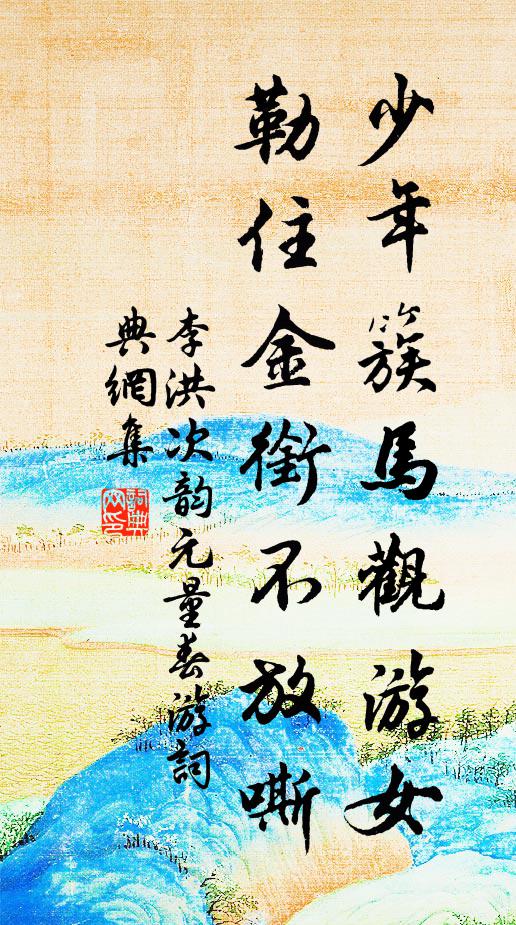 少年簇馬觀游女
勒住金銜不放嘶
李洪次韵元量春游詞
典網集
詞典網印